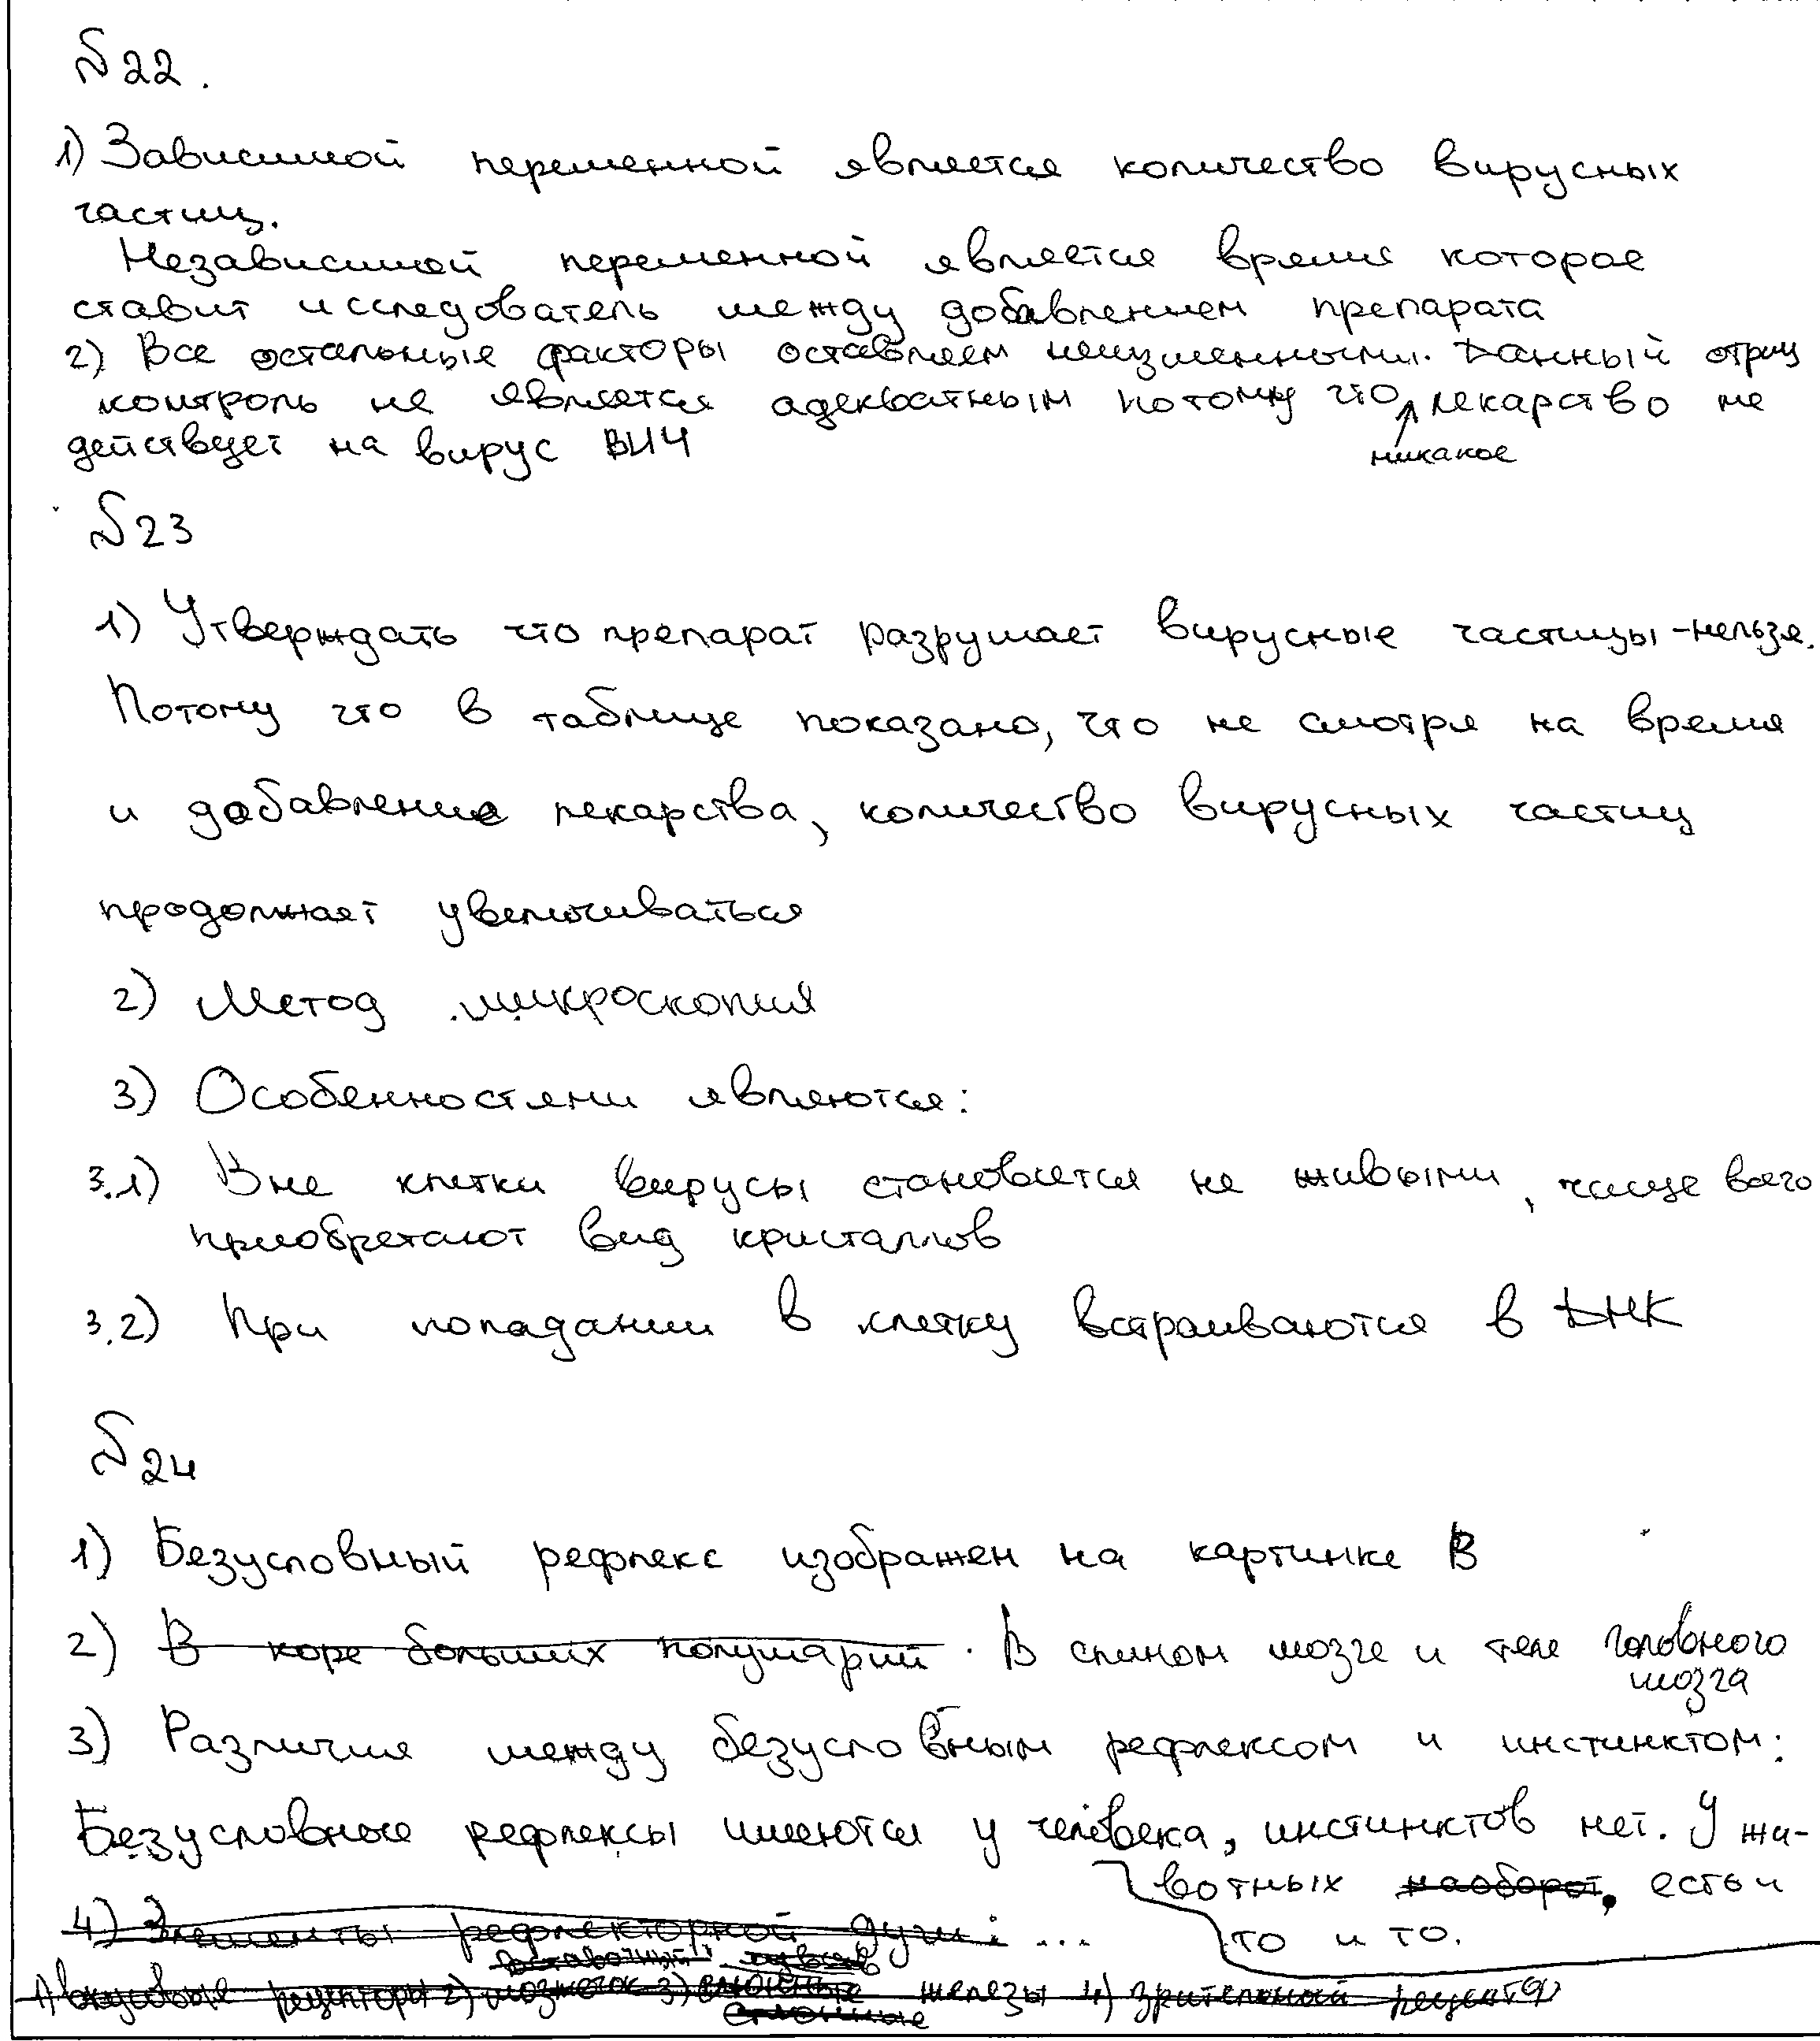 №22.
1) Зависимой переменной является количество вирусных
частиц.
Независимой переменной является время которое
ставит исследователь между добавлением препарата
2) Все остальные факторы оставляем неизменными. Данный отриц
контроль не является адекватным потому что никакое лекарство не
действует на вирус ВИЧ
№23
1) Утверждать что препарат разрушает вирусные частицы - нельзя.
Потому что в таблице показано, что не смотря на время
и добавление лекарства, количество вирусных частиц
продолжает увеличиваться
2) Метод микроскопия
3) Особенностями являются:
3.1) Вне клетки вирусы становятся не живыми, чаще всего
приобретают вид кристаллов
3.2) При попадании в клетку встраиваются в ДНК
№24
1) Безусловный рефлекс изображен на картинке В
2) В коре больших полушарий. В спином мозге и теле головного
мозга
3) Различия между безусловным рефлексом и инстинктом:
Безусловные рефлексы имеются у человека, инстинктов нет. У жи-
вотных наоборот, есть и
то и то.
4) Элементы рефлекторной дуги: ...
1) вкусовые рецепторы 2) мозжечок 3) слюнные железы 4) зрительный рецептор